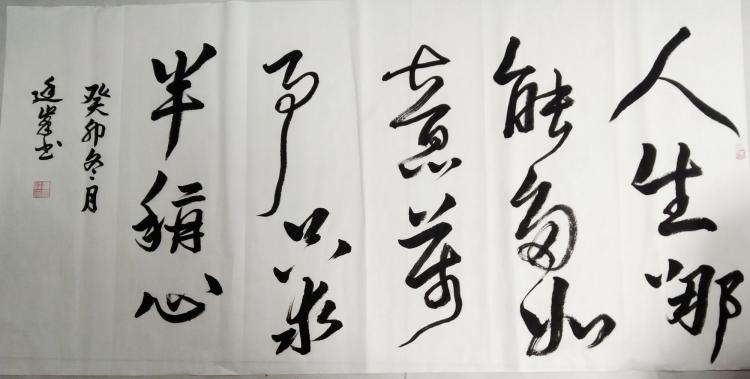 人生哪
能多如
意萬
事只求
半稱心
癸卯冬月
峯书